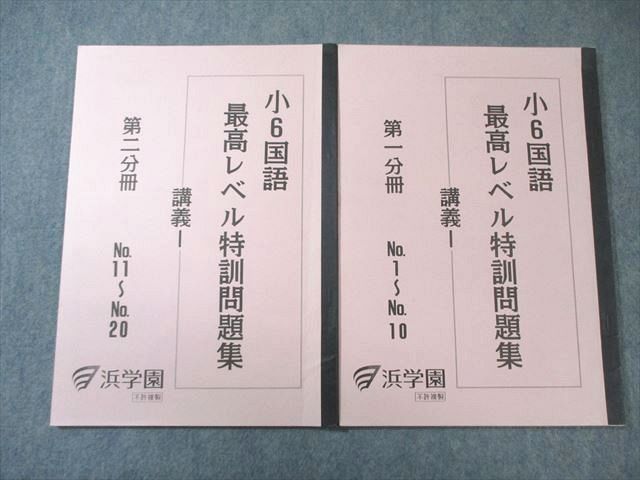 小6国語
最高レベル特訓問題集
講義Ⅰ
第一分冊
No.1〜No.10
浜学園
不許複製
小6国語
最高レベル特訓問題集
講義Ⅰ
第二分冊
No.11〜No.20
浜学園
不許複製